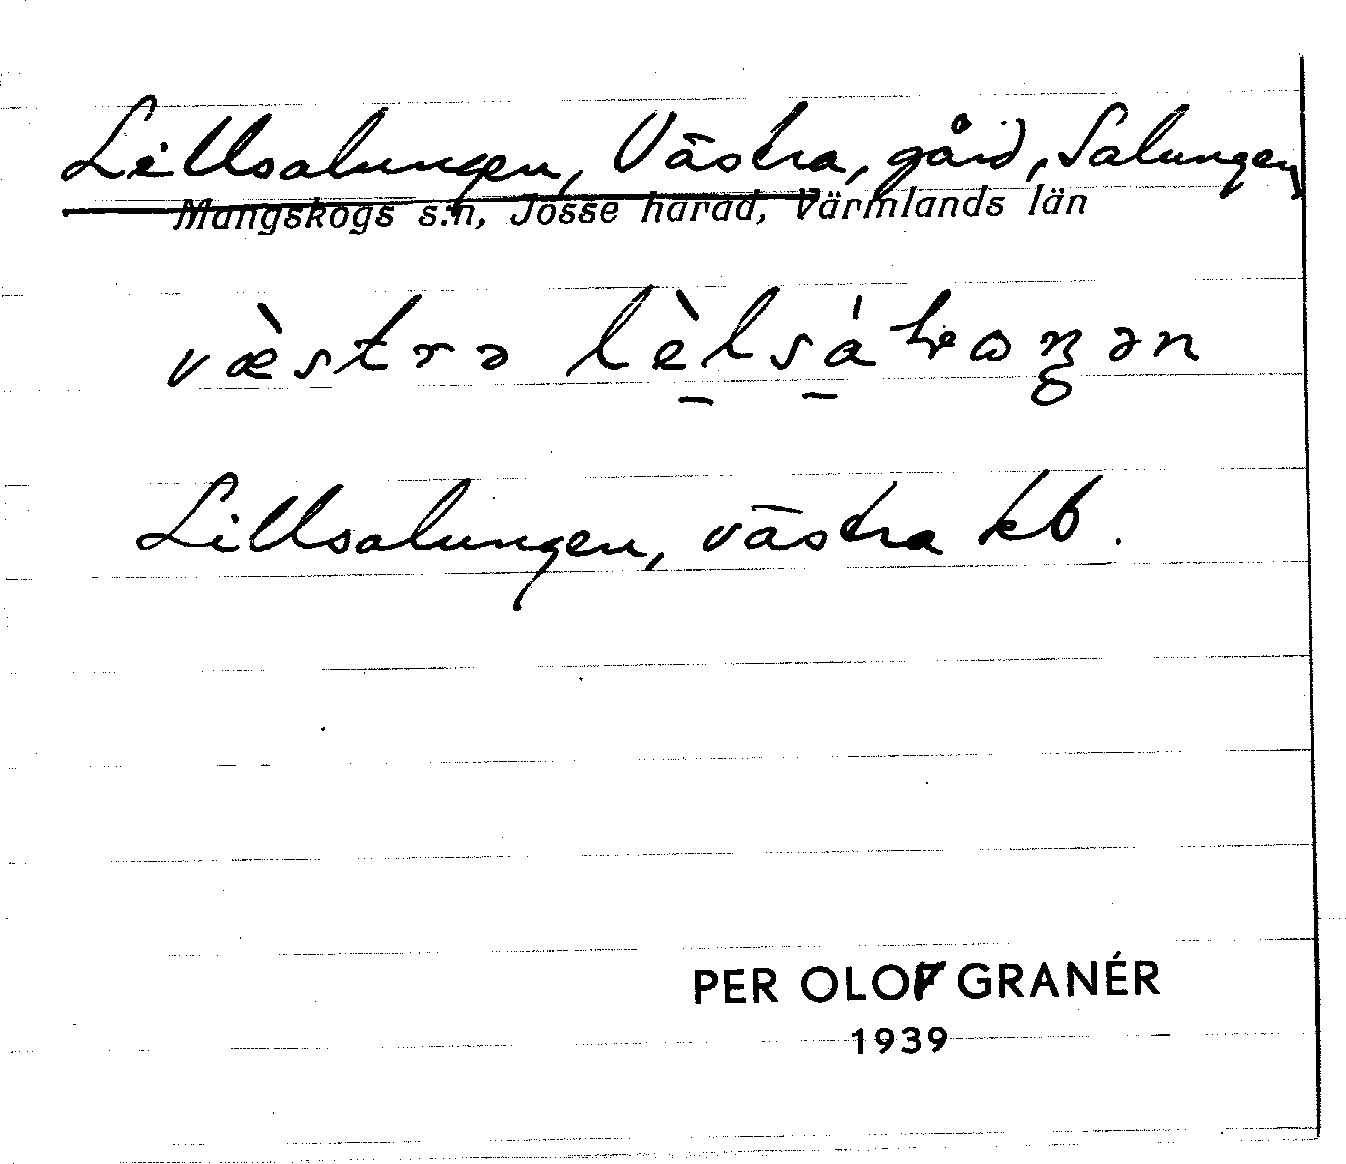 Lillsalungen, Västra, gård, Salungen,
Mangskogs s:n, Jösse härad, Värmlands län
Lillsalungen, västra kb.
PER OLOF GRANÉR
1939